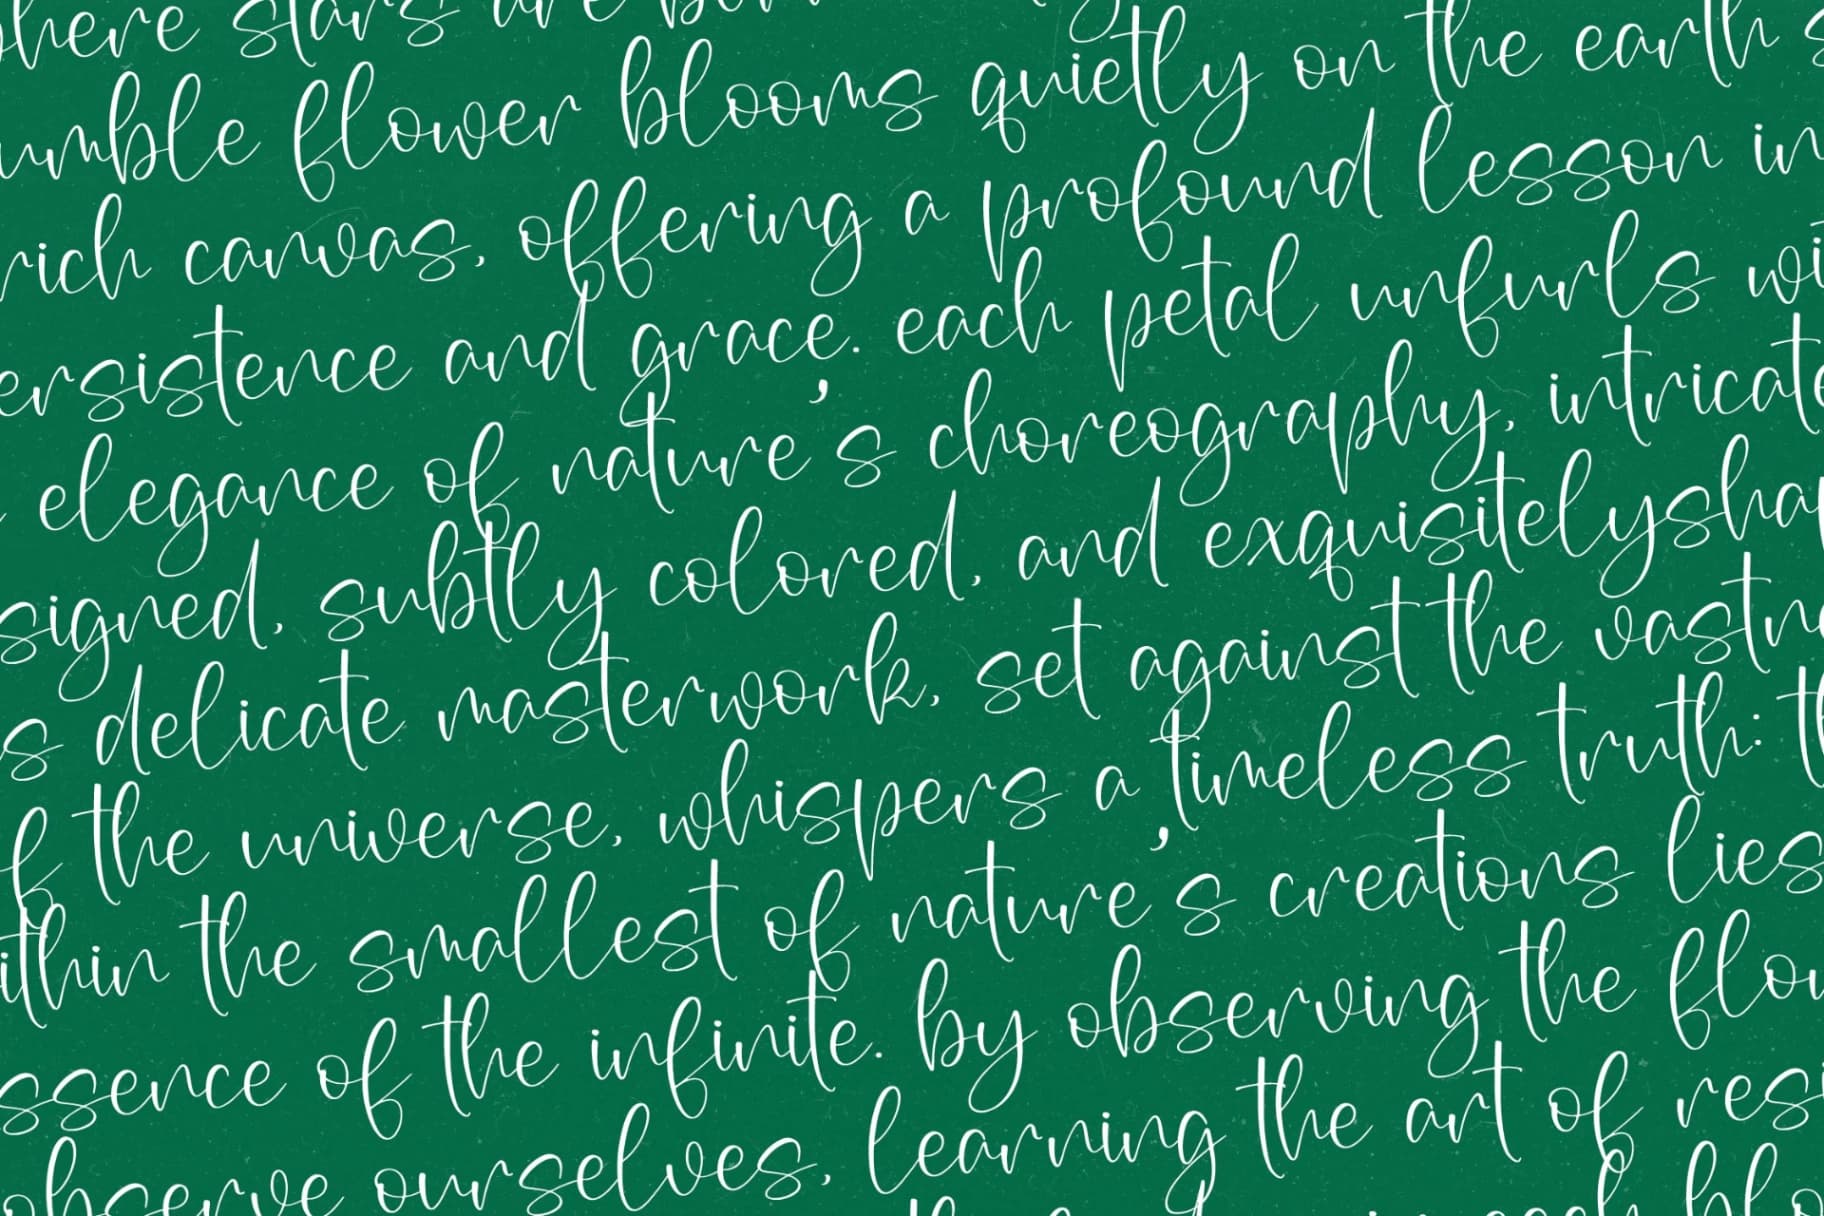 here stars are
umble flower blooms quietly on the earth's
rich canvas, offering a profound lesson in
ersistence and grace. each petal unfurls wi
elegance of nature's choreography, intricate
signed, subtly colored, and exquisitelyshap
s delicate masterwork, set against the vastne
f the universe, whispers a timeless truth: th
ithin the smallest of nature's creations lies
ssence of the infinite. by observing the flow
observe ourselves, learning the art of resi
in each blo